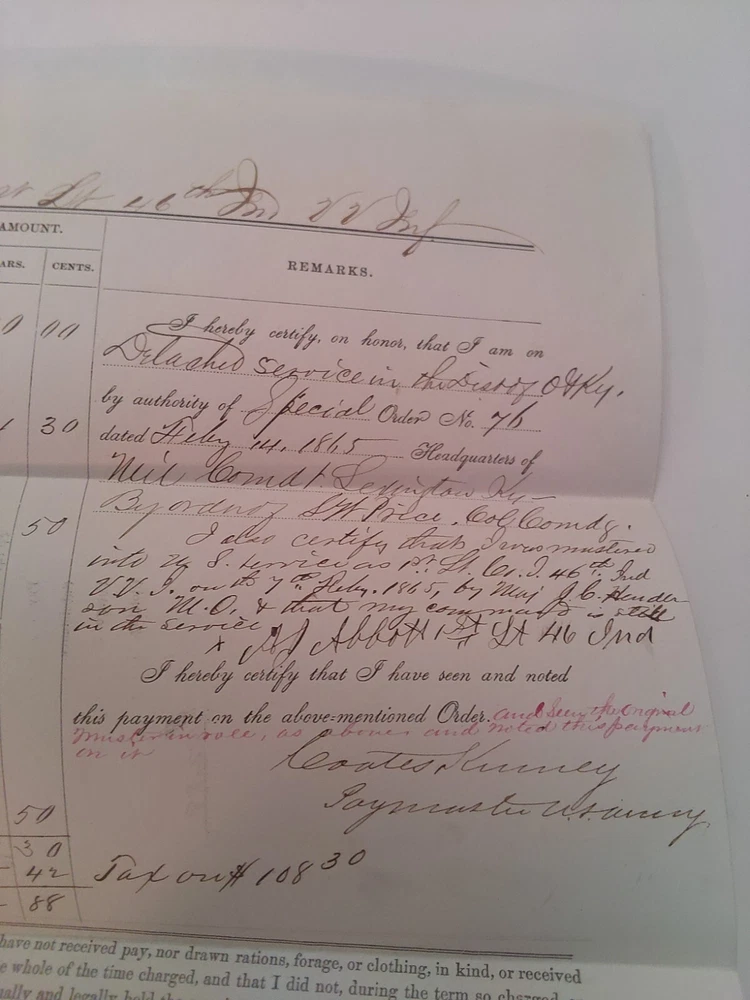 st Lt 46th Ind V V Inf
AMOUNT.
ARS. CENTS. REMARKS.
I hereby certify, on honor, that I am on
0 00
Detached Service in the Dist of Ky.
by authority of Special Order No. 76
30
dated Feby 14, 1865 Headquarters of
Mil Comdt. Lexington Ky
By order of S W Price, Col Comdg.
50
I also certify that I was mustered
into U S. Service as 1st. Lt. Co. I. 46th Ind
V V. I., on the 7th Feby. 1865, by Maj J. C. Hender
son M.O. & that my command is still
in the service
x A J Abbott 1st Lt 46 Ind
I hereby certify that I have seen and noted
this payment on the above-mentioned Order. and seen the original
muster in roll, as above and noted this payment
on it
Coates Kinney
Paymaster U.S. Army
50
30
42 Tax on $108 30
88
have not received pay, nor drawn rations, forage, or clothing, in kind, or received
e whole of the time charged, and that I did not, during the term so charged,
ually and legally held